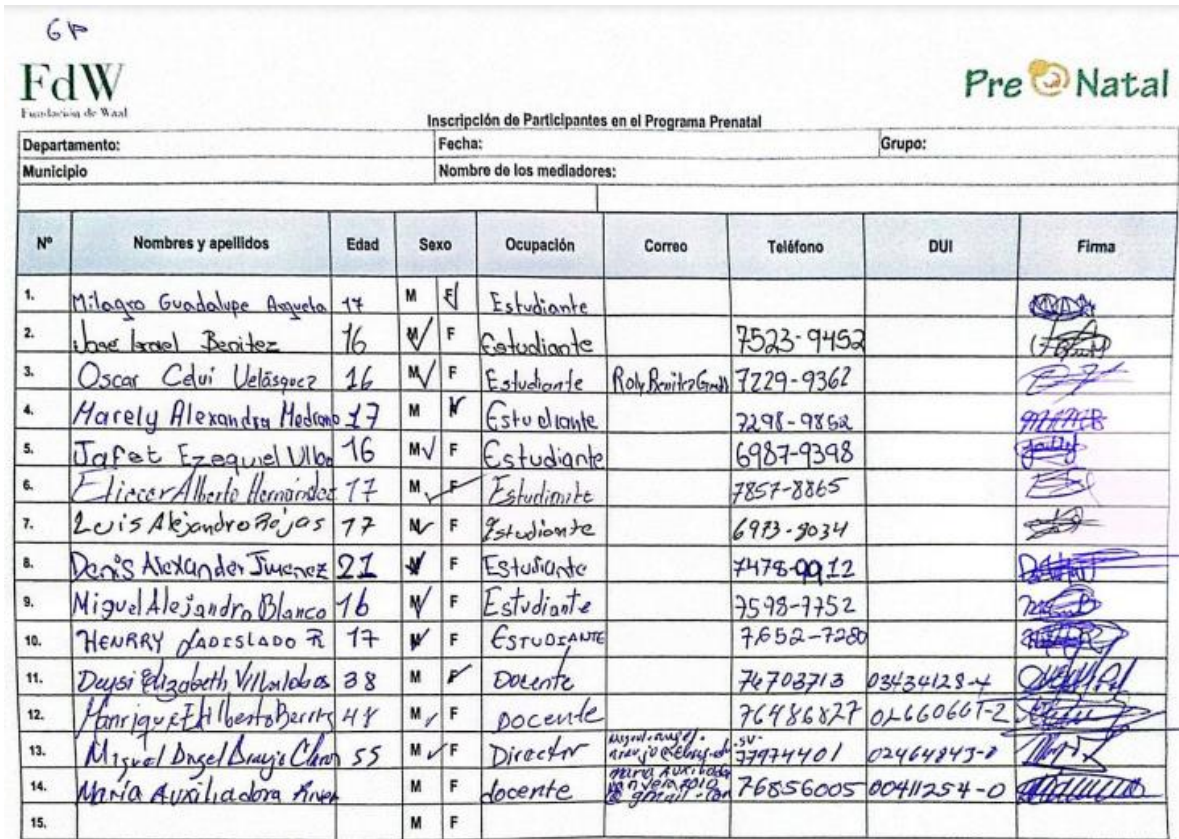 GP
FdW
Fundación de Waal
Pre Natal
Inscripción de Participantes en el Programa Prenatal
Departamento: Fecha: Grupo:
Municipio Nombre de los mediadores:
Nº Nombres y apellidos Edad Sexo Ocupación Correo Teléfono DUI Firma
1. Milagro Guadalupe Argueta 17 M F Estudiante
2. José Israel Benitez 16 M F Estudiante 7523-9452
3. Oscar Velásquez 16 M F Estudiante 7229-9362
4. Marely Alexandra Medrano 17 M F Estudiante 7298-9862
5. Jafet Ezequiel 16 M F Estudiante 6987-9398
6. Eliecer Alberto Hernández 17 M F Estudiante 7857-8865
7. Luis Alejandro Rojas 17 M F Estudiante 6973-9034
8. Denis Alexander Jimenez 21 M F Estudiante 7478-9912
9. Miguel Alejandro Blanco 16 M F Estudiante 7598-7752
10. HENRRY LADISLADO R 17 M F ESTUDIANTE 7652-7280
11. Deysi Elizabeth Villalobos 38 M F Docente 76703713 03434128-4
12. M F Docente 76486827
13. Miguel Angel 55 M F Director 77974401 02464843-8
14. María Auxiliadora M F docente 76856005 00411254-0
15. M F